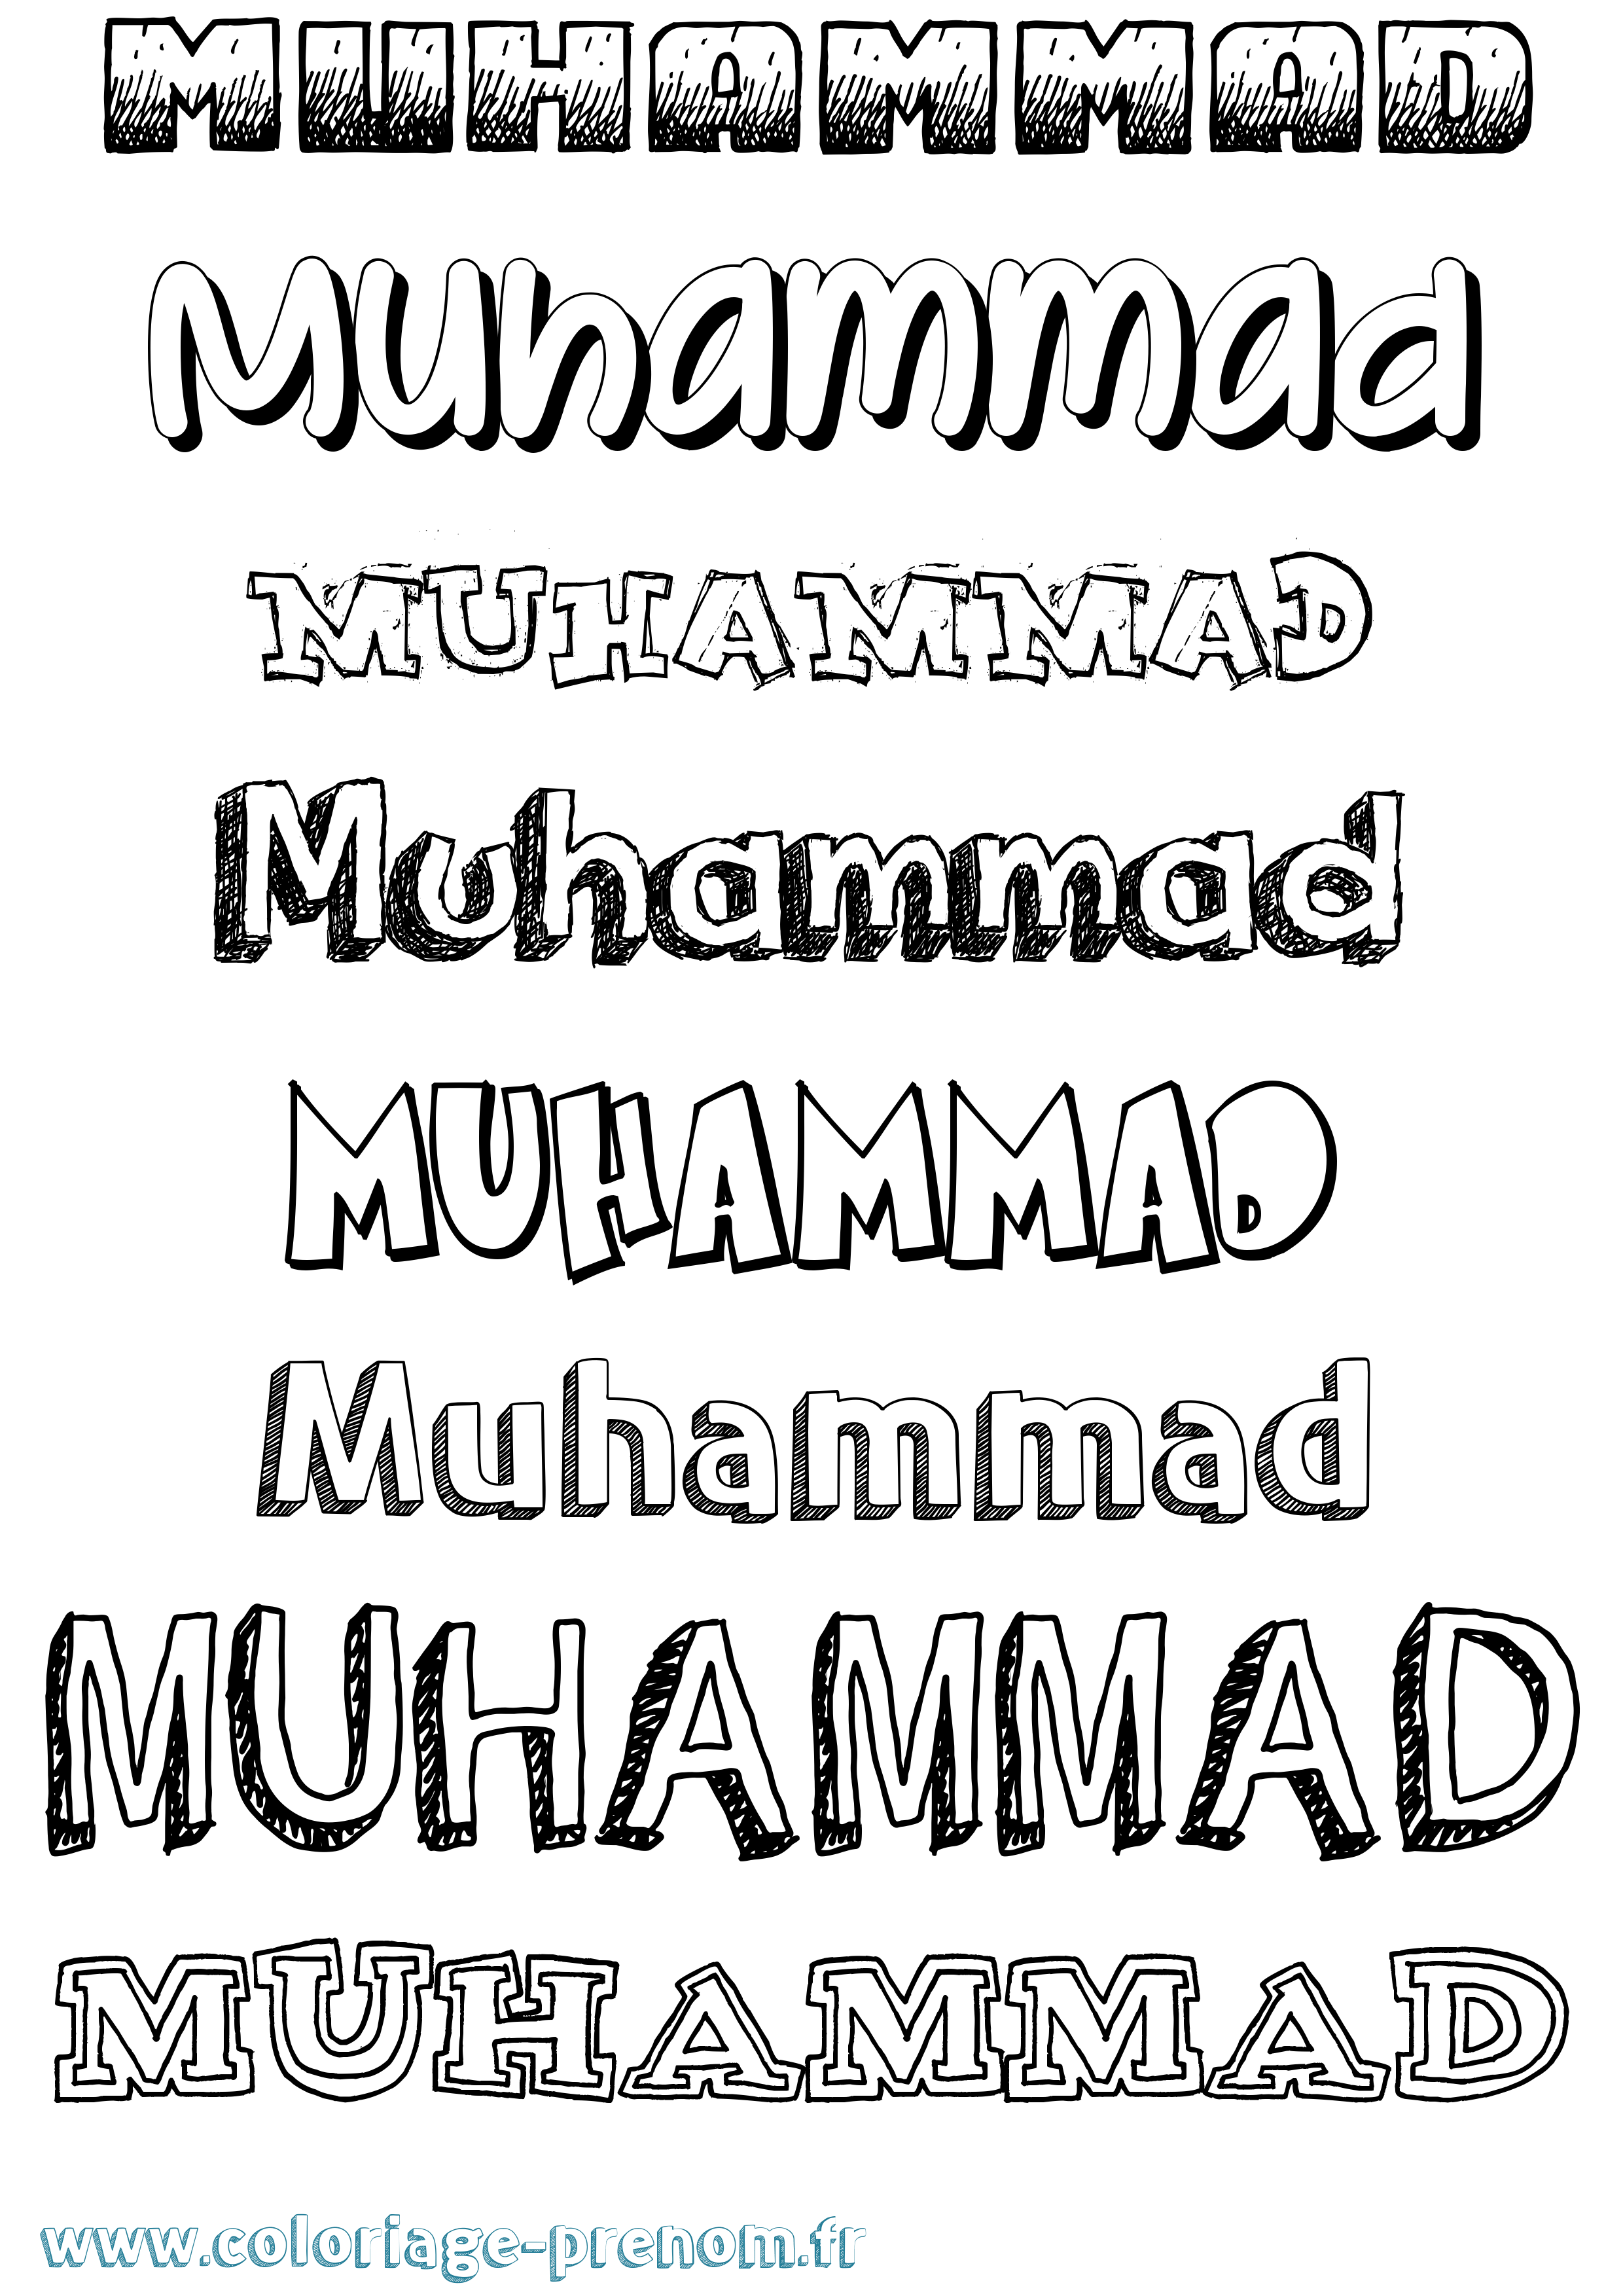 MUHAMMAD
Muhammad
MUHAMMAD
Muhammad
MUHAMMAD
Muhammad
MUHAMMAD
MUHAMMAD
www.coloriage-prenom.fr